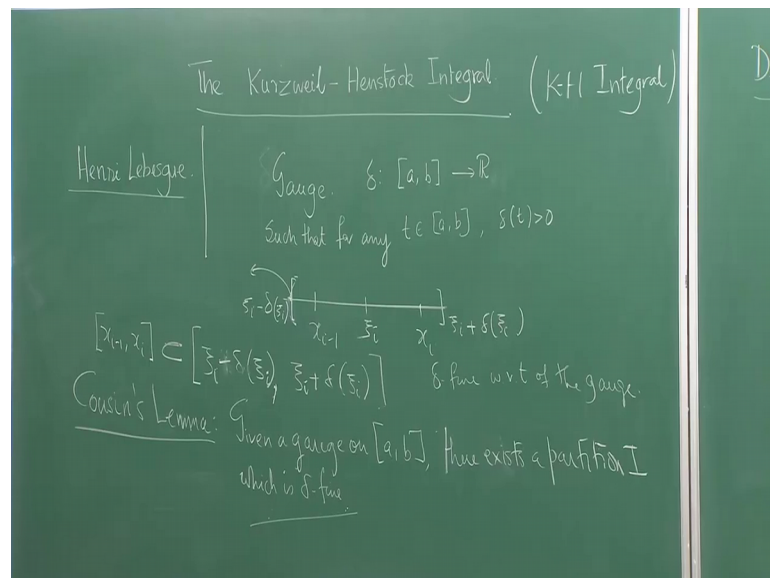 The Kurzweil-Henstock Integral (K-H Integral)
D
Henri Lebesgue.
Gauge. δ: [a, b] → ℝ
Such that for any t ∈ [a, b], δ(t)>0
ξi-δ(ξi) xi-1 ξi xi ξi + δ(ξi)
[xi-1, xi] ⊂ [ξi-δ(ξi), ξi + δ(ξi)]
δ-fine w r t of the gauge.
Cousin's Lemma: Given a gauge on [a, b], there exists a partition I
which is δ-fine